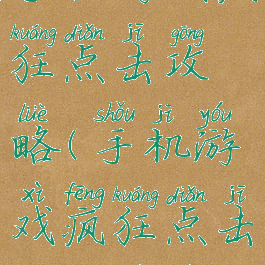 kuáng diǎn jī gōng
狂点击攻
lüè shǒu jī yóu
略(手机游
xì fēng kuáng diǎn jī
戏疯狂点击